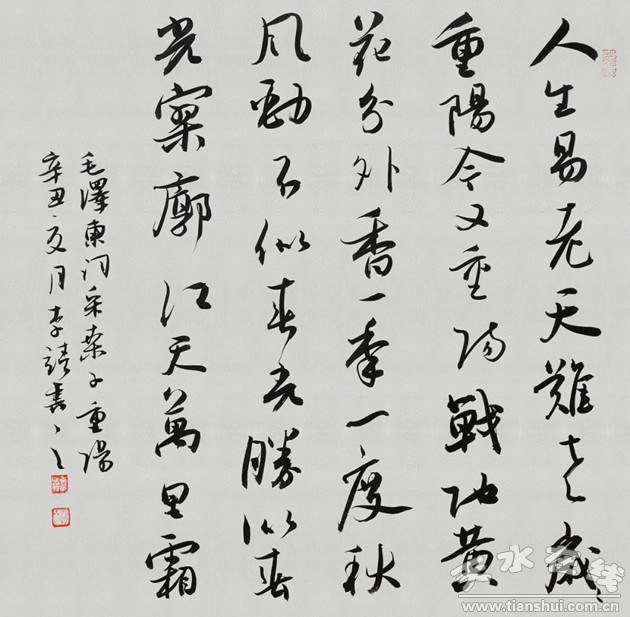 人生易老天難老歲々
重陽今又重陽戰地黃
花分外香一年一度秋
風勁不似春光勝似春
光寥廓江天萬里霜
毛澤東词采桑子重陽
辛丑夏月李靖書
天水在线
www.tianshui.com.cn